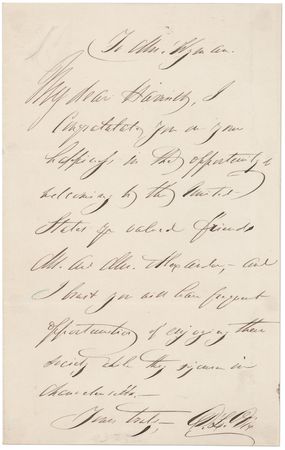 To Mrs. Wyman.
My dear Hannily, I
Congratulate you on your
happiness in the opportunity of
welcoming to the United
States yr valued friends
Mr. and Mrs. Alexander, and
I trust you will have frequent
opportunities of enjoying their
society while they sojourn in
Yours truly,